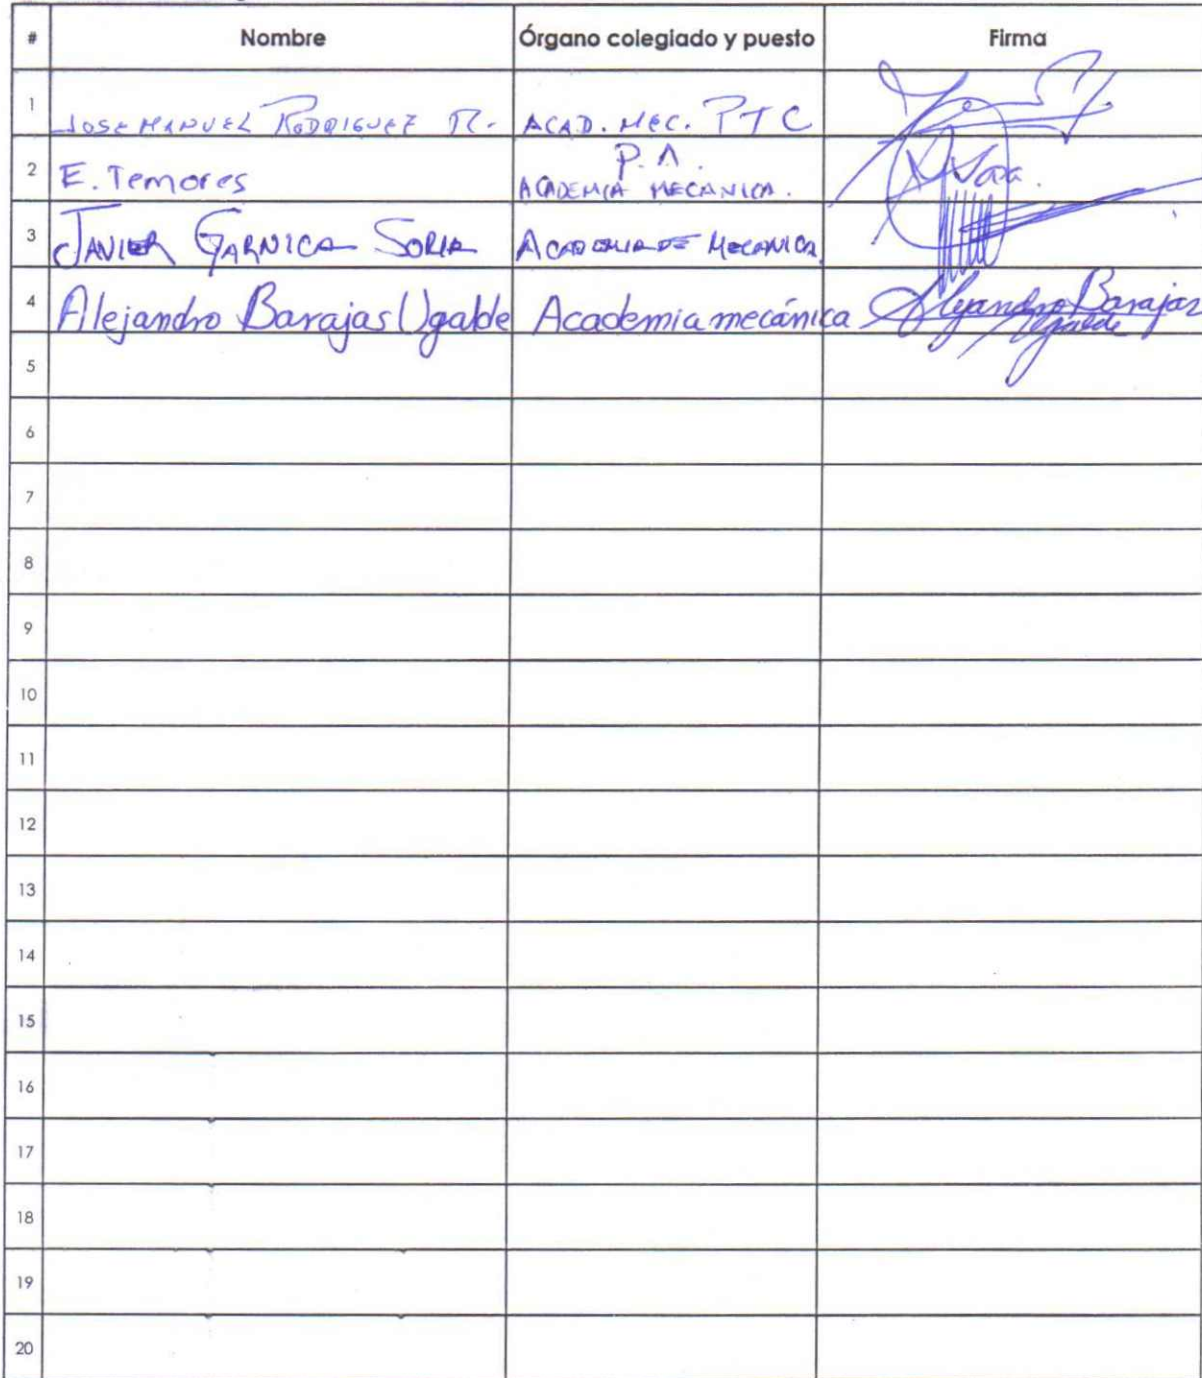 # Nombre Órgano colegiado y puesto Firma
1 JOSE MANUEL RODRIGUEZ R. ACAD. MEC. PTC
2 E. Temores P.A.
ACADEMIA MECANICA.
3 JAVIER GARNICA SORIA ACADEMIA DE MECANICA
4 Alejandro Barajas Ugalde Academia mecánica Alejandro Barajas
Ugalde
5
6
7
8
9
10
11
12
13
14
15
16
17
18
19
20